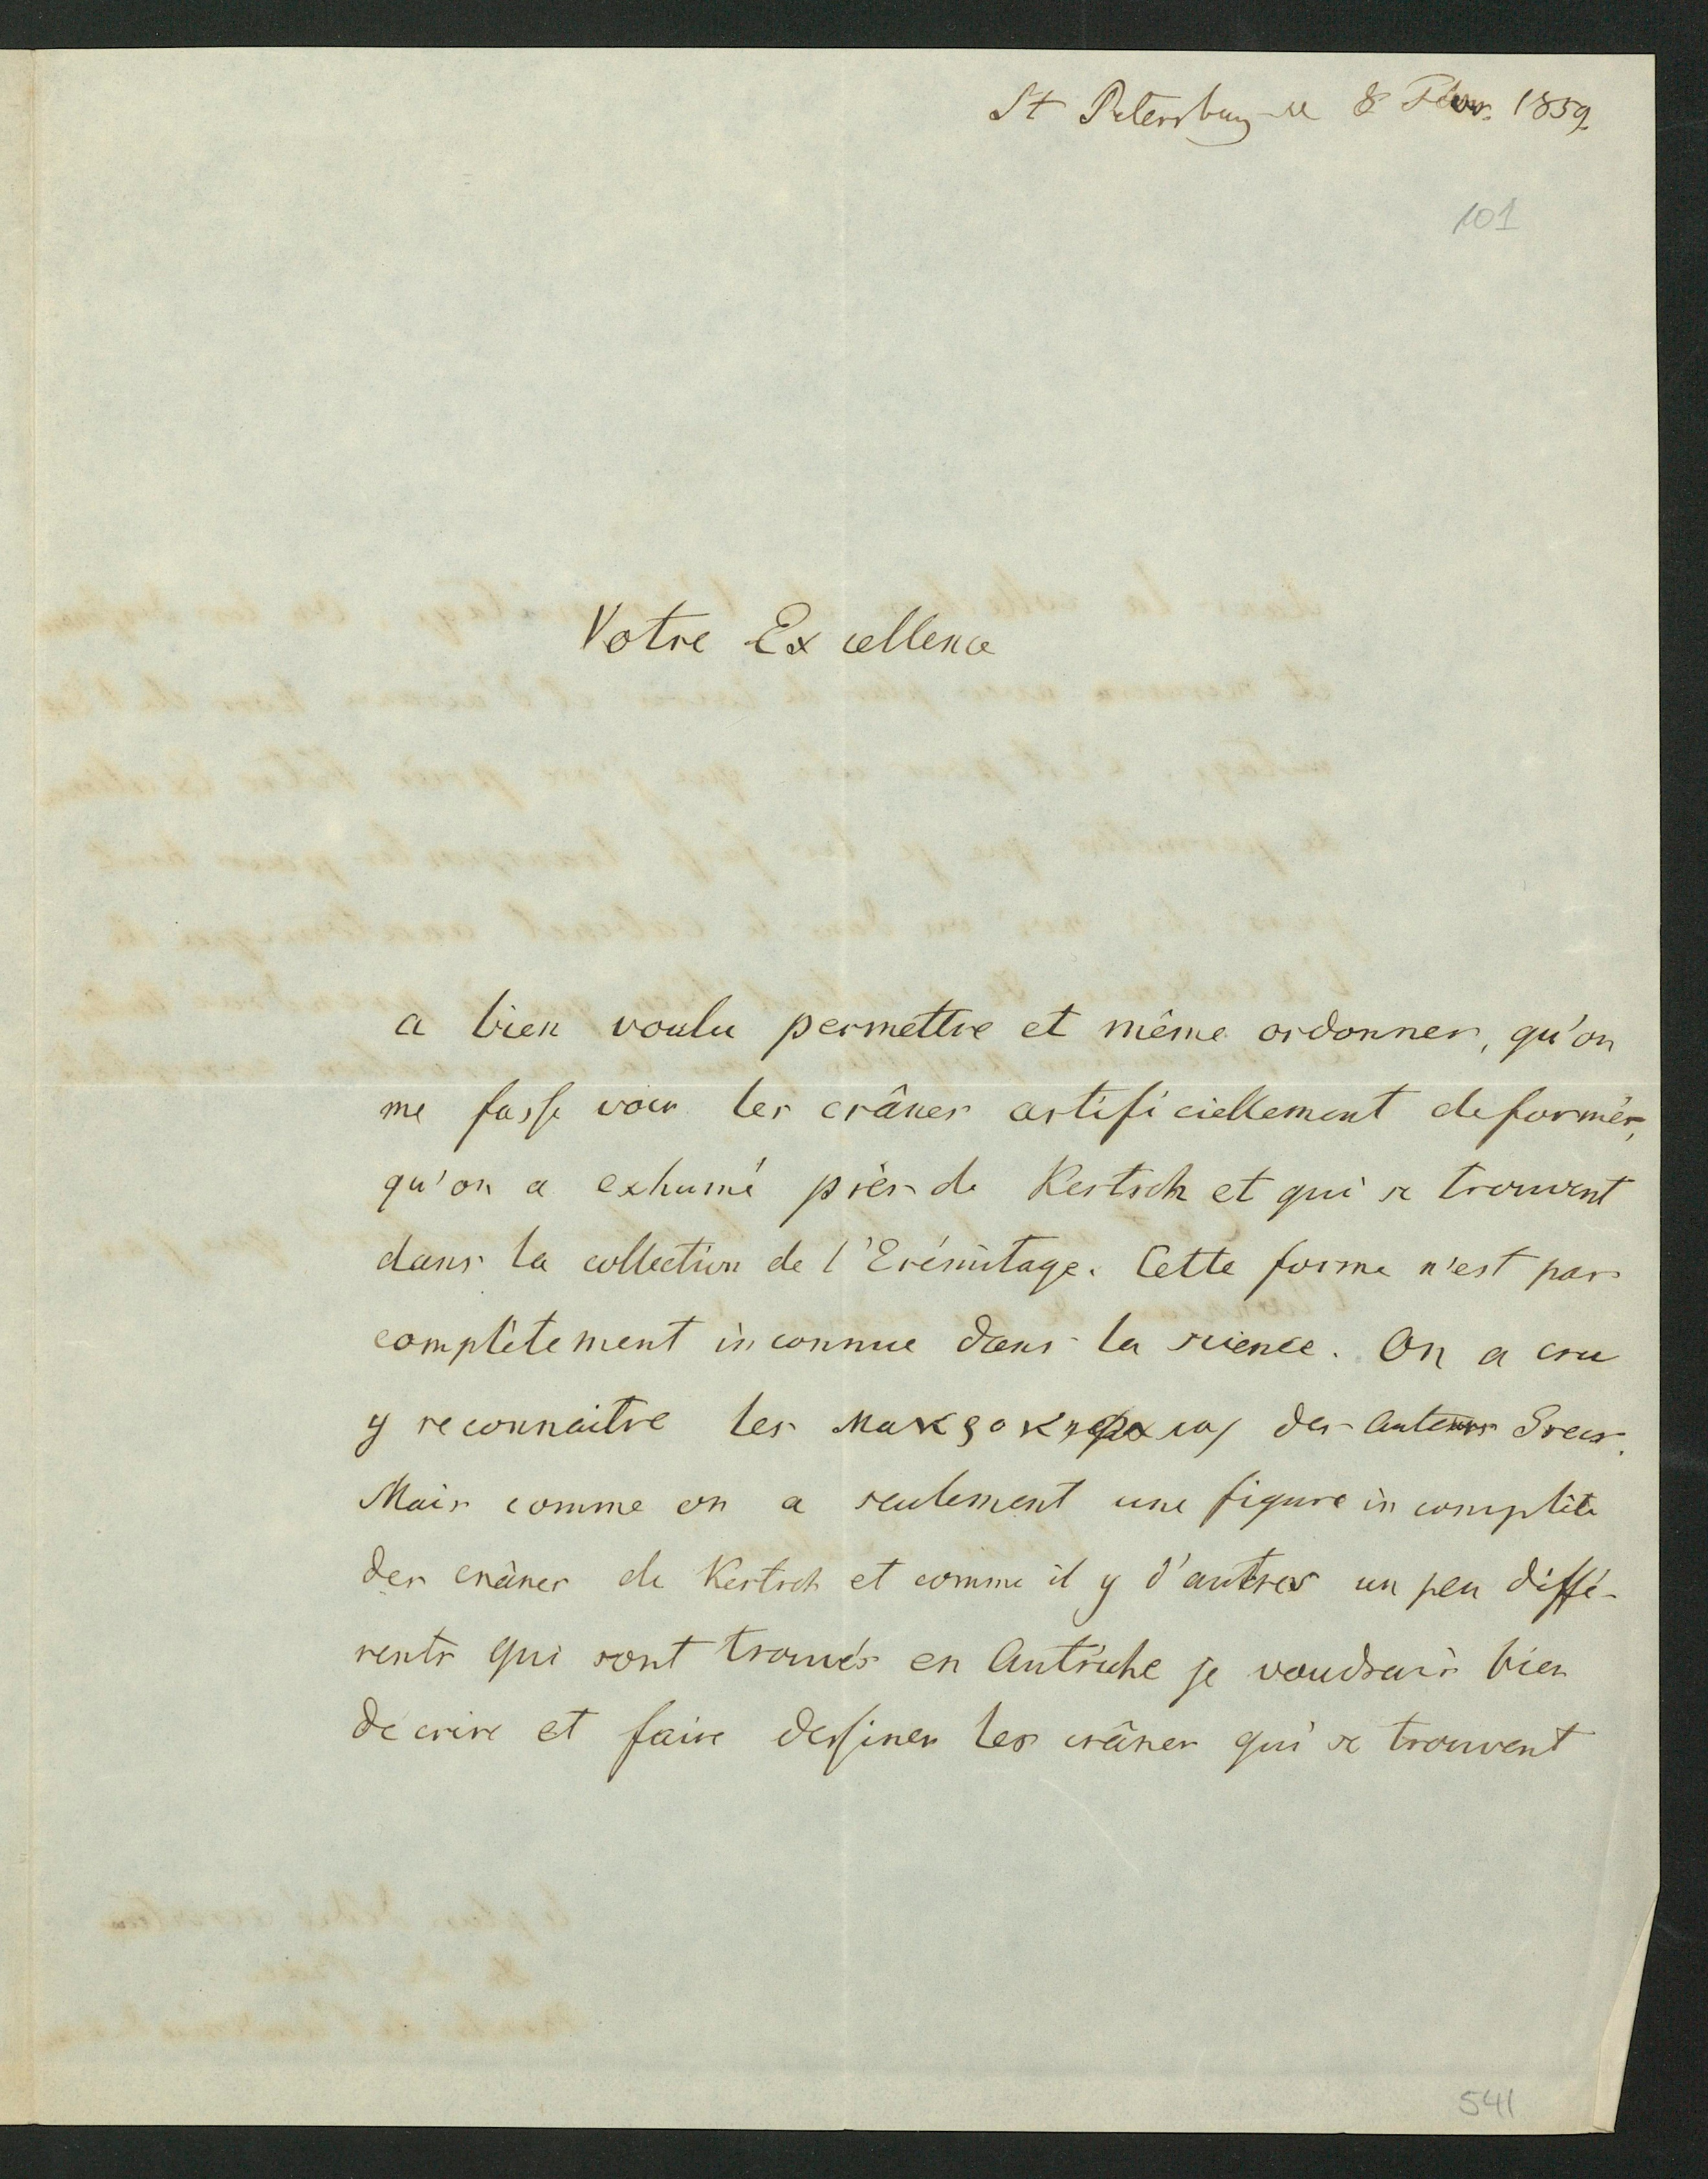 St Petersburg le 8 Févr. 1859.
101
Votre Excellence
a bien voulu permettre et même ordonner, qu'on
me fasse voir les crânes artificiellement deformés,
qu'on a exhumé près de Kertsch et qui se trouvent
dans la collection de l'Erémitage. Cette forme n'est pas
complètement inconnue dans la science. On a cru
y reconnaitre les des auteurs Grecs.
Mais comme on a seulement une figure incomplète
des crânes de Kertsch et comme il y d'autres un peu diffé-
rents qui sont trouvés en Autriche je voudrais bien
décrire et faire dessiner les crânes qui se trouvent
541